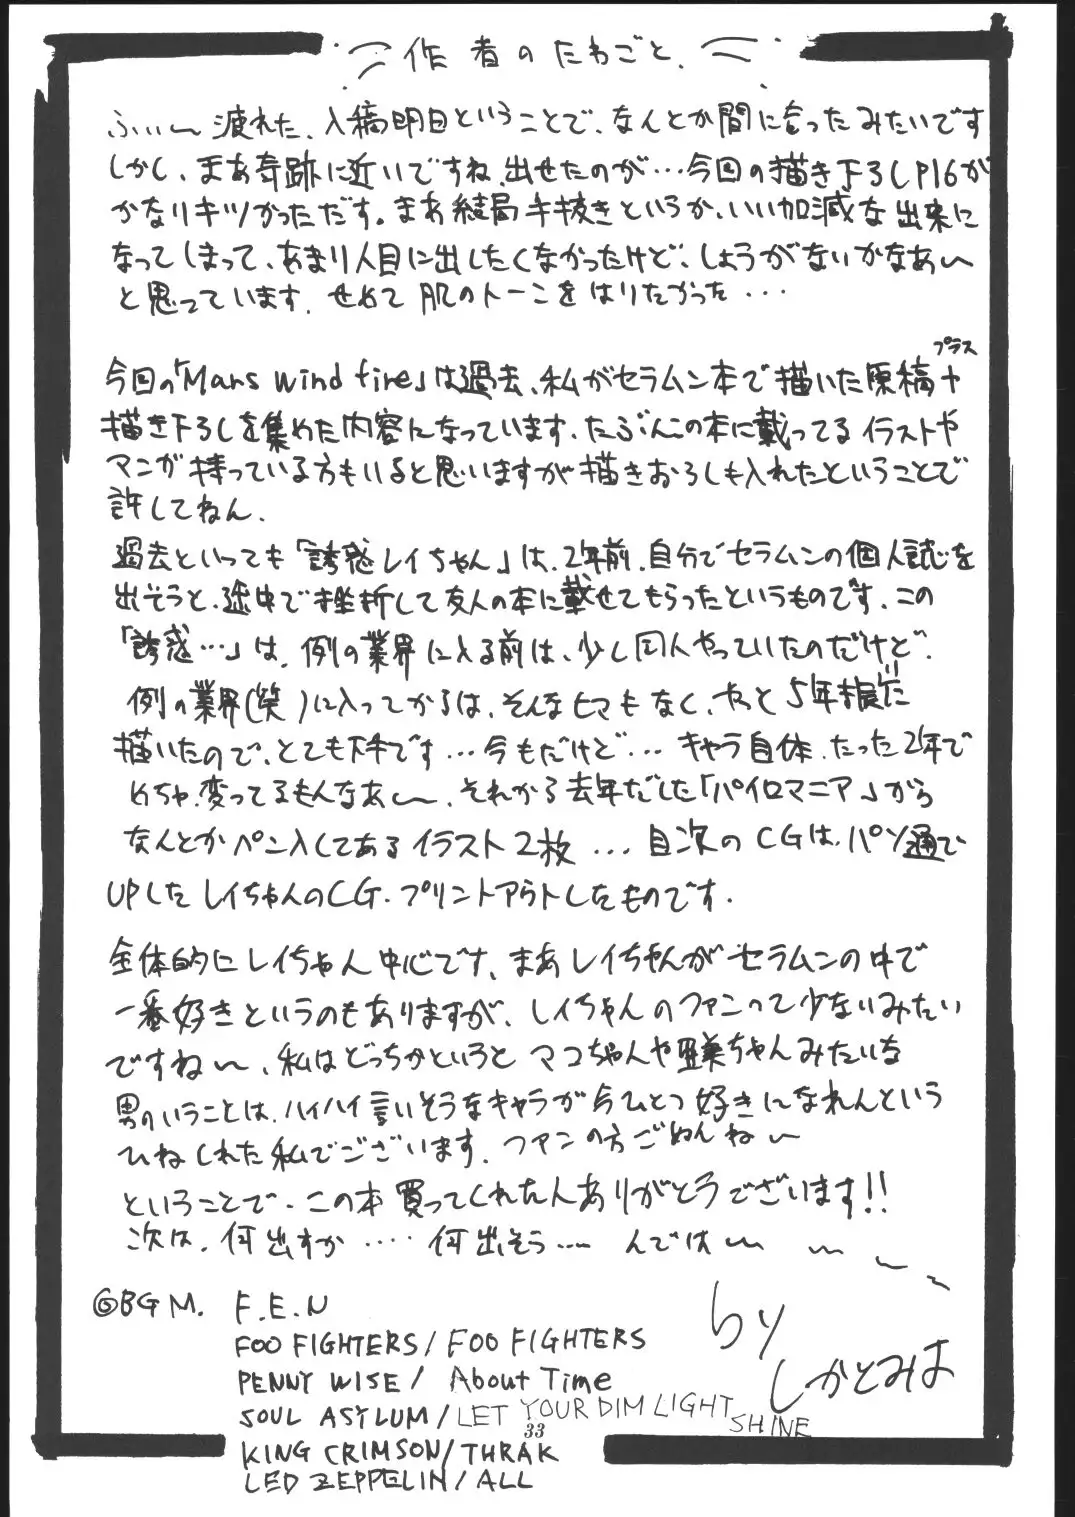 作者のたわごと.
ふぃ〜 疲れた、入稿明日ということで、なんとか間に合ったみたいです
しかし、まあ奇跡に近いですね、出せたのが…今回の描き下ろしP16が
かなりキツかっただす。まあ結局手抜きというか、いい加減な出来に
なってしまって、あまり人目に出したくなかったけど、しょうがないかなあ〜
と思っています. せめて肌のトーンをはりたかった...
今回の「Mars wind fire」は過去、私がセラムン本で描いた原稿+
プラス
描き下ろしを集めた内容になっています. たぶんこの本に載ってるイラストや
マンガ持っている方もいると思いますが描きおろしも入れたということで
許してねん.
過去といっても「誘惑レイちゃん」は、2年前、自分でセラムンの個人誌を
出そうと、途中で挫折して友人の本に載せてもらったというものです. この
「誘惑…」は、例の業界に入る前は、少し同人やっていたのだけど.
例の業界(笑)に入ってからは、そんなヒマもなく、やっと5年振りに
描いたので、とても下手です…今もだけど… キャラ自体、たった2年で
めちゃ、変ってるもんなあ〜. それから去年だした「パイロマニア」から
なんとかペン入してあるイラスト2枚 ... 目次のCGは、パソ通で
UPしたレイちゃんのCG. プリントアウトしたものです.
全体的にレイちゃん中心です、まあレイちゃんがセラムンの中で
一番好きというのもありますが、レイちゃんのファンって少ないみたい
ですね〜、私はどっちかというと マコちゃんや亜美ちゃんみたいな
男のいうことは、ハイハイ言いそうなキャラが今ひとつ好きになれんという
ひねくれた私でございます. ファンの方ごめんね〜
ということで、この本買ってくれた人ありがとうでございます!!
次は、何出すか .... 何出そう .... んでは〜
◎BGM. F.E.N
FOO FIGHTERS/FOO FIGHTERS
PENNY WISE/ About Time
SOUL ASYLUM/LET YOUR DIM LIGHT SHINE
KING CRIMSON/THRAK
LED ZEPPELIN/ALL
by しかとみよ
33